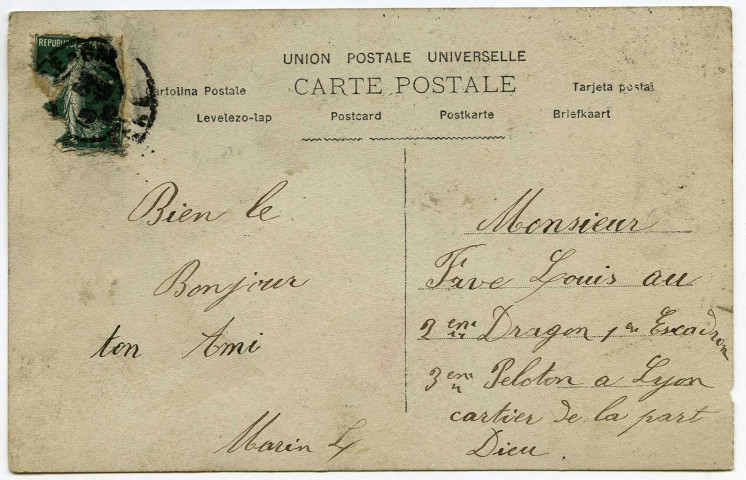 REPUBLIQUE
UNION POSTALE UNIVERSELLE
CARTE POSTALE
Cartolina Postale
Tarjeta postal
Levelezo-lap Postcard Postkarte Briefkaart
Bien le
Bonjour
ton Ami
Marin L
Monsieur
Fave Louis au
2eme Dragon 1er Escadron
3eme Peloton a Lyon
cartier de la part
Dieu